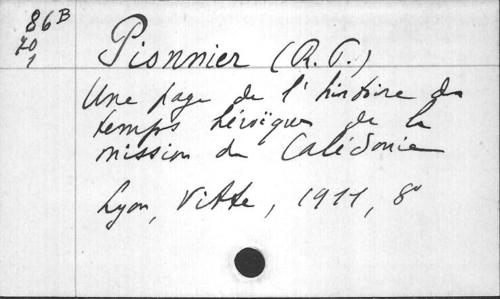 86 B
70
1
Pionnier (R. P.)
Une page de l'histoire des
temps héroïques de la
mission de Calédonie
Lyon, Vitte, 1911, 8°